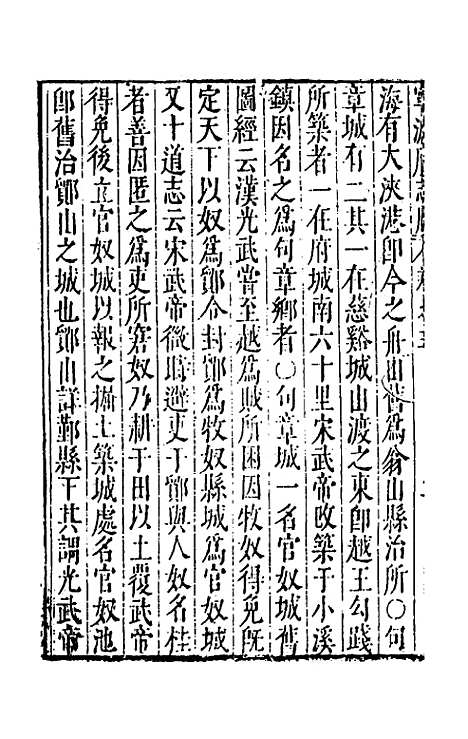 海有大浹港卽今之舟山舊爲翁山縣治所〇句
章城有二其一在慈谿城山渡之東卽越王勾踐
所築者一在府城南六十里宋武帝改築于小溪
鎮因名之爲句章鄉者〇句章城一名官奴城舊
圖經云漢光武嘗至越爲賊所困因牧奴得免旣
定天下以奴爲鄮令封鄮爲牧奴縣城爲官奴城
又十道志云宋武帝微時避吏于鄮與人奴名桂
者善因匿之爲吏所窘奴乃耕于田以土覆武帝
得免後立官奴城以報之掘土築城處名官奴池
卽舊治鄮山之城也鄮山詳鄞縣下其謂光武帝